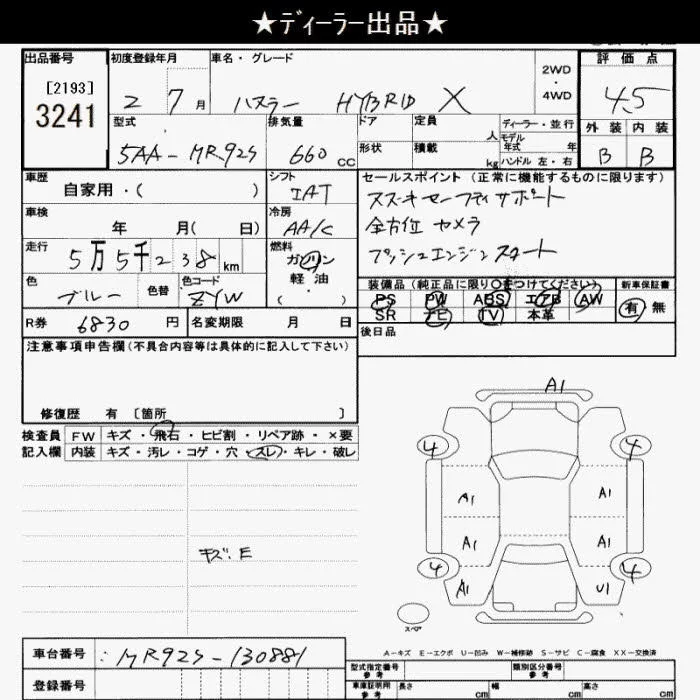 ★ディーラー出品★
出品番号
[2193]
3241
初度登録年月
2 7月
車名・グレード
ハスラー HYBRID X
2WD
・
4WD
評価点
4.5
外装 内装
B B
型式
5AA-MR92S
排気量
660 cc
ドア
形状
定員
人
積載
kg
ディーラー・並行
モデル年式 年
ハンドル 左・右
車歴
自家用・( )
シフト
IAT
セールスポイント (正常に機能するものに限ります)
スズキセーフティサポート
全方位カメラ
プッシュエンジンスタート
車検
年 月( 日)
冷房
AA/C
走行
5万5千238km
燃料
ガソリン
・
軽・油
( )
色
ブルー
色替
色コード
ZYW
装備品 (純正品に限り〇をつけてください)
PS PW ABS エアB AW
SR ナビ TV 本革
新車保証書
有 無
R券 6830円
名変期限 月 日
後日品
注意事項申告欄(不具合内容等は具体的に記入して下さい)
修復歴 有 [箇所 ]
検査員 FW キズ・飛石・ヒビ割・リペア跡・×要
記入欄 内装 キズ・汚レ・コゲ・穴・スレ・キレ・破レ
キズ・E
A1
4 4
A1 A1
A1 A1
4 4
A1 U1
スペア
A-キズ E-エクボ U-凹み W-補修跡 S-サビ C-腐食 XX-交換済
車台番号 : MR92S-130881
登録番号
型式指定番号
参考
類別区分番号
参考
車庫証明用
参考
長さ cm
幅 cm
高さ cm